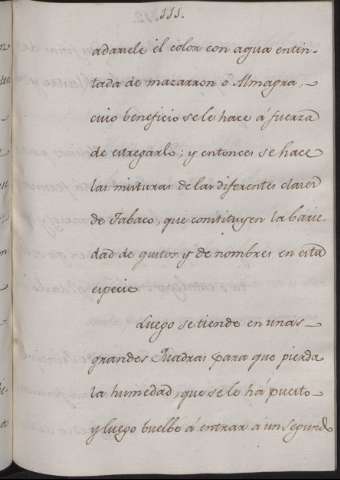 111.
adarsele él color con agua entin-
tada de mazarron ó Almagra,
cuio beneficio se le hace á fuerza
de estregarlo; y entonces se hace
las misturas de las diferentes clases
de Tabaco, que constituyen la barie-
dad de gustos y de nombres en esta
especie
Luego se tiende en unas
grandes Quadras para que pierda
la humedad, que se le há puesto
y luego buelbe á entrar a un segundo